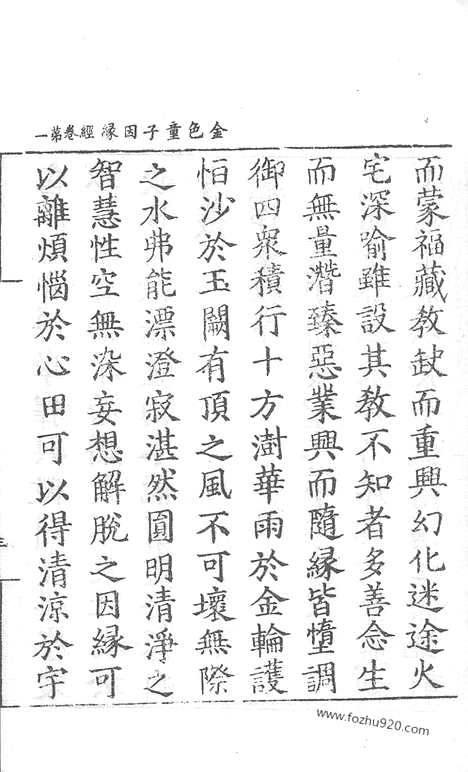 金色童子因縁經卷苐一
而蒙福藏教缺而重興幻化迷途火
宅深喻雖設其教不知者多善念生
而無量濳臻惡業興而隨縁皆墮調
御四衆積行十方澍華雨於金輪護
恒沙於玉闕有頂之風不可壞無際
之水弗能漂澄寂湛然圓明清淨之
智慧性空無染妄想解脫之因縁可
以離煩惱於心田可以得清涼於宇
三
www.fozhu920.com